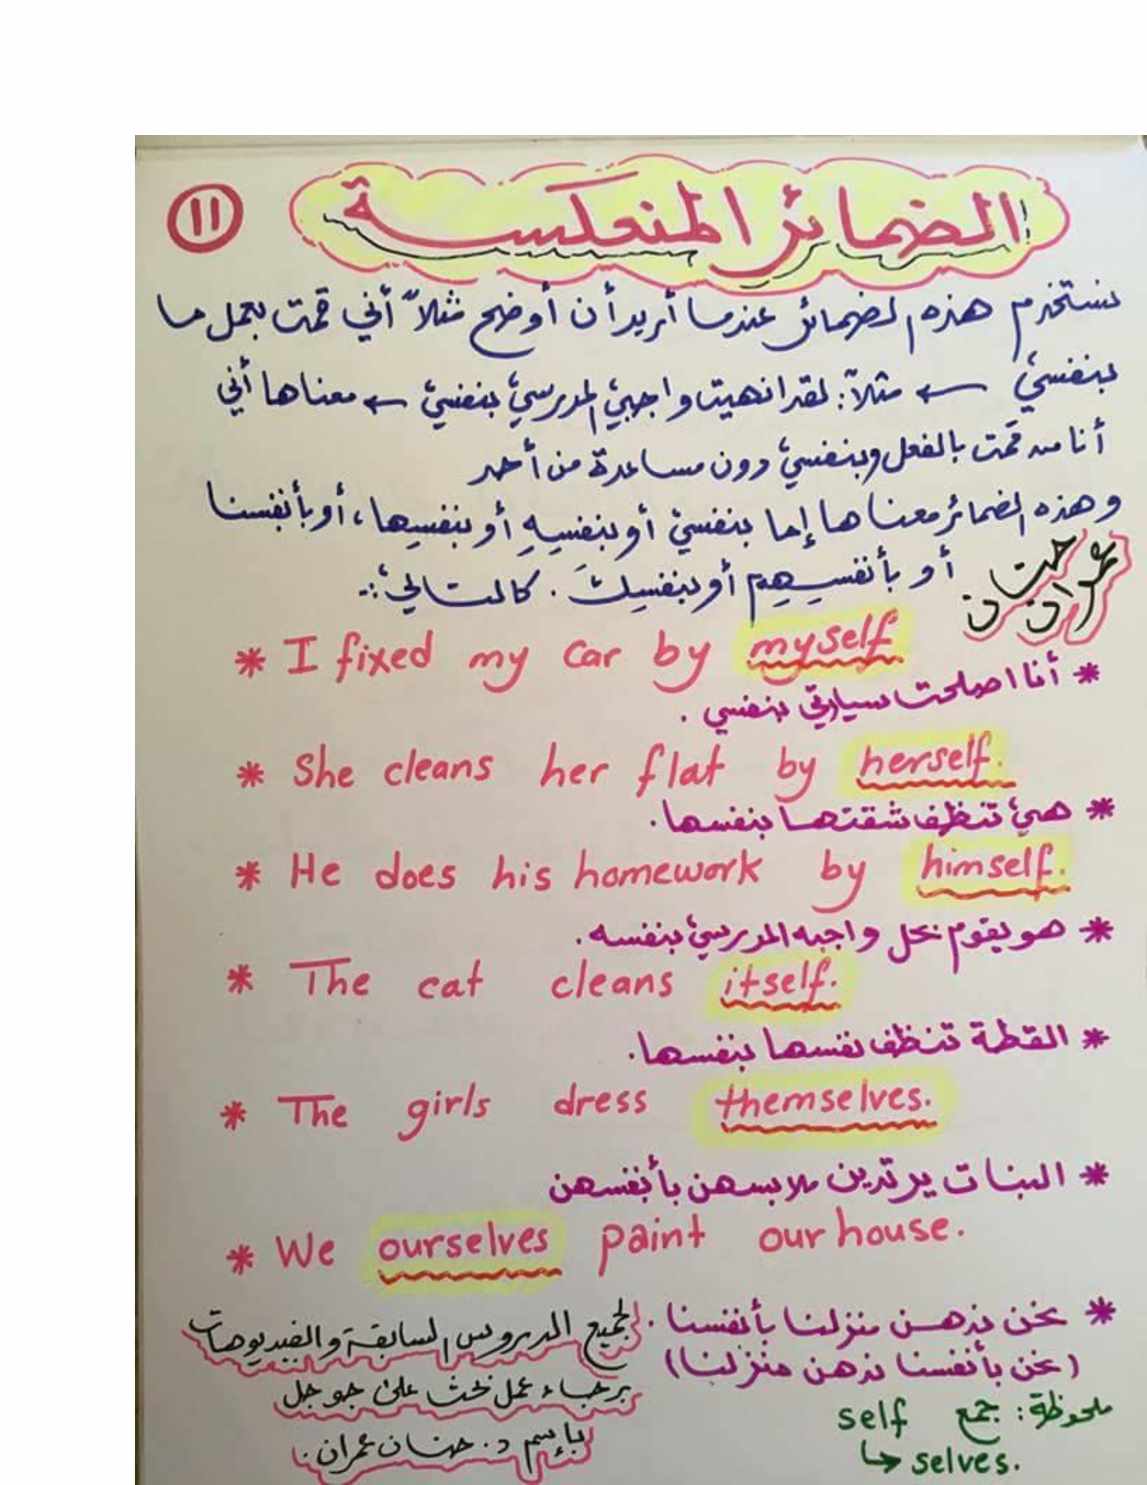 الضمائر المنعكسة
١١
نستخدم هذه الضمائر عندما أريد أن أوضح مثلاً أني قمت بعمل ما
بنفسي ← مثلاً: لقد انهيت واجبي المدرسي بنفسي ← معناها أني
أنا من قمت بالفعل وبنفسي دون مساعدة من أحد
وهذه الضمائر معناها إما بنفسي أو بنفسهِ أو بنفسِها، أو بأنفِسنا
أو بأنفسِهِم أو بنفسِكَ. كالتالي:-
حنان
عمران
* I fixed my car by myself
* أنا اصلحت سيارتي بنفسي.
* She cleans her flat by herself.
* هي تنظف شقتها بنفسها.
* He does his homework by himself.
* هو يقوم بحل واجبه المدرسي بنفسه.
* The cat cleans itself.
* القطة تنظف نفسها بنفسها.
* The girls dress themselves.
* البنات يرتدين ملابسهن بأنفسهن
* We ourselves paint our house.
* نحن ندهن منزلنا بأنفسنا.
(نحن بأنفسنا ندهن منزلنا)
ملحوظة: جمع self
↳ selves.
لجميع الدروس السابقة والفيديوهات
برجاء عمل بحث على جوجل
بإسم د. حنان عمران.